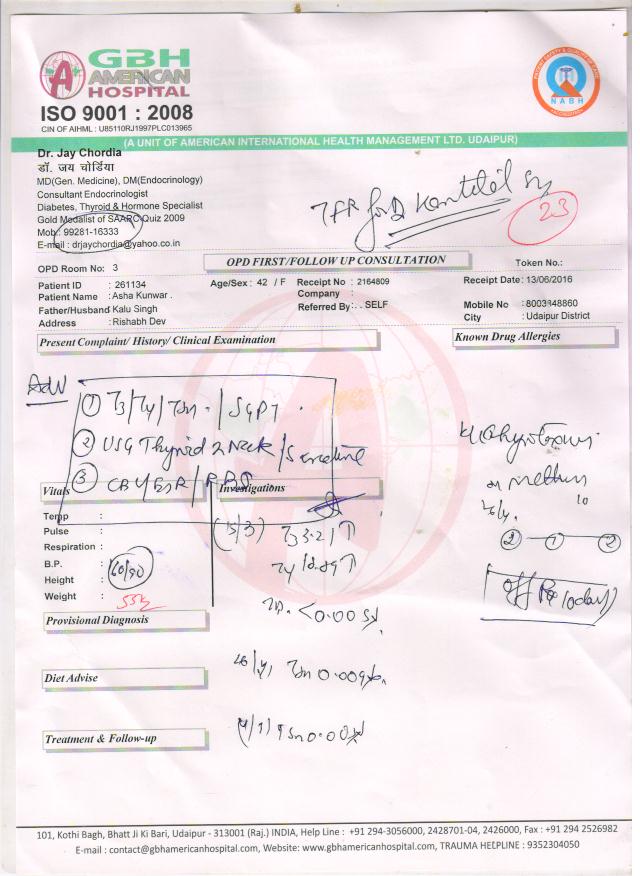 GBH
AMERICAN
HOSPITAL
ISO 9001 : 2008
CIN OF AIHML : U85110RJ1997PLC013965
PATIENT SAFETY & QUALITY OF CARE
NABH
ACCREDITED
(A UNIT OF AMERICAN INTERNATIONAL HEALTH MANAGEMENT LTD. UDAIPUR)
Dr. Jay Chordia
डॉ. जय चोर्डिया
MD(Gen. Medicine), DM(Endocrinology)
Consultant Endocrinologist
Diabetes, Thyroid & Hormone Specialist
Gold Medalist of SAARC Quiz 2009
Mob: 99281-16333
E-mail : drjaychordia@yahoo.co.in
23
OPD Room No: 3
OPD FIRST/FOLLOW UP CONSULTATION
Token No.:
Patient ID : 261134 Age/Sex : 42 / F Receipt No : 2164809 Receipt Date: 13/06/2016
Patient Name : Asha Kunwar . Company :
Father/Husband Kalu Singh Referred By: . . SELF Mobile No :8003348860
Address : Rishabh Dev City : Udaipur District
Present Complaint/ History/ Clinical Examination
Known Drug Allergies
Adv
① T3/T4/TSH / SGPT
② USG Thyroid & Neck / S creatine
③ CBC/ESR/RBS
Vitals
Investigations
Temp :
Pulse :
Respiration :
B.P. : 160/90
Height :
Weight : 55kg
(15/3) T3 3.21↑
② — ① — ②
off Rx today
Provisional Diagnosis
TSH 0.009
Diet Advise
Treatment & Follow-up
101, Kothi Bagh, Bhatt Ji Ki Bari, Udaipur - 313001 (Raj.) INDIA, Help Line : +91 294-3056000, 2428701-04, 2426000, Fax : +91 294 2526982
E-mail : contact@gbhamericanhospital.com, Website: www.gbhamericanhospital.com, TRAUMA HELPLINE : 9352304050